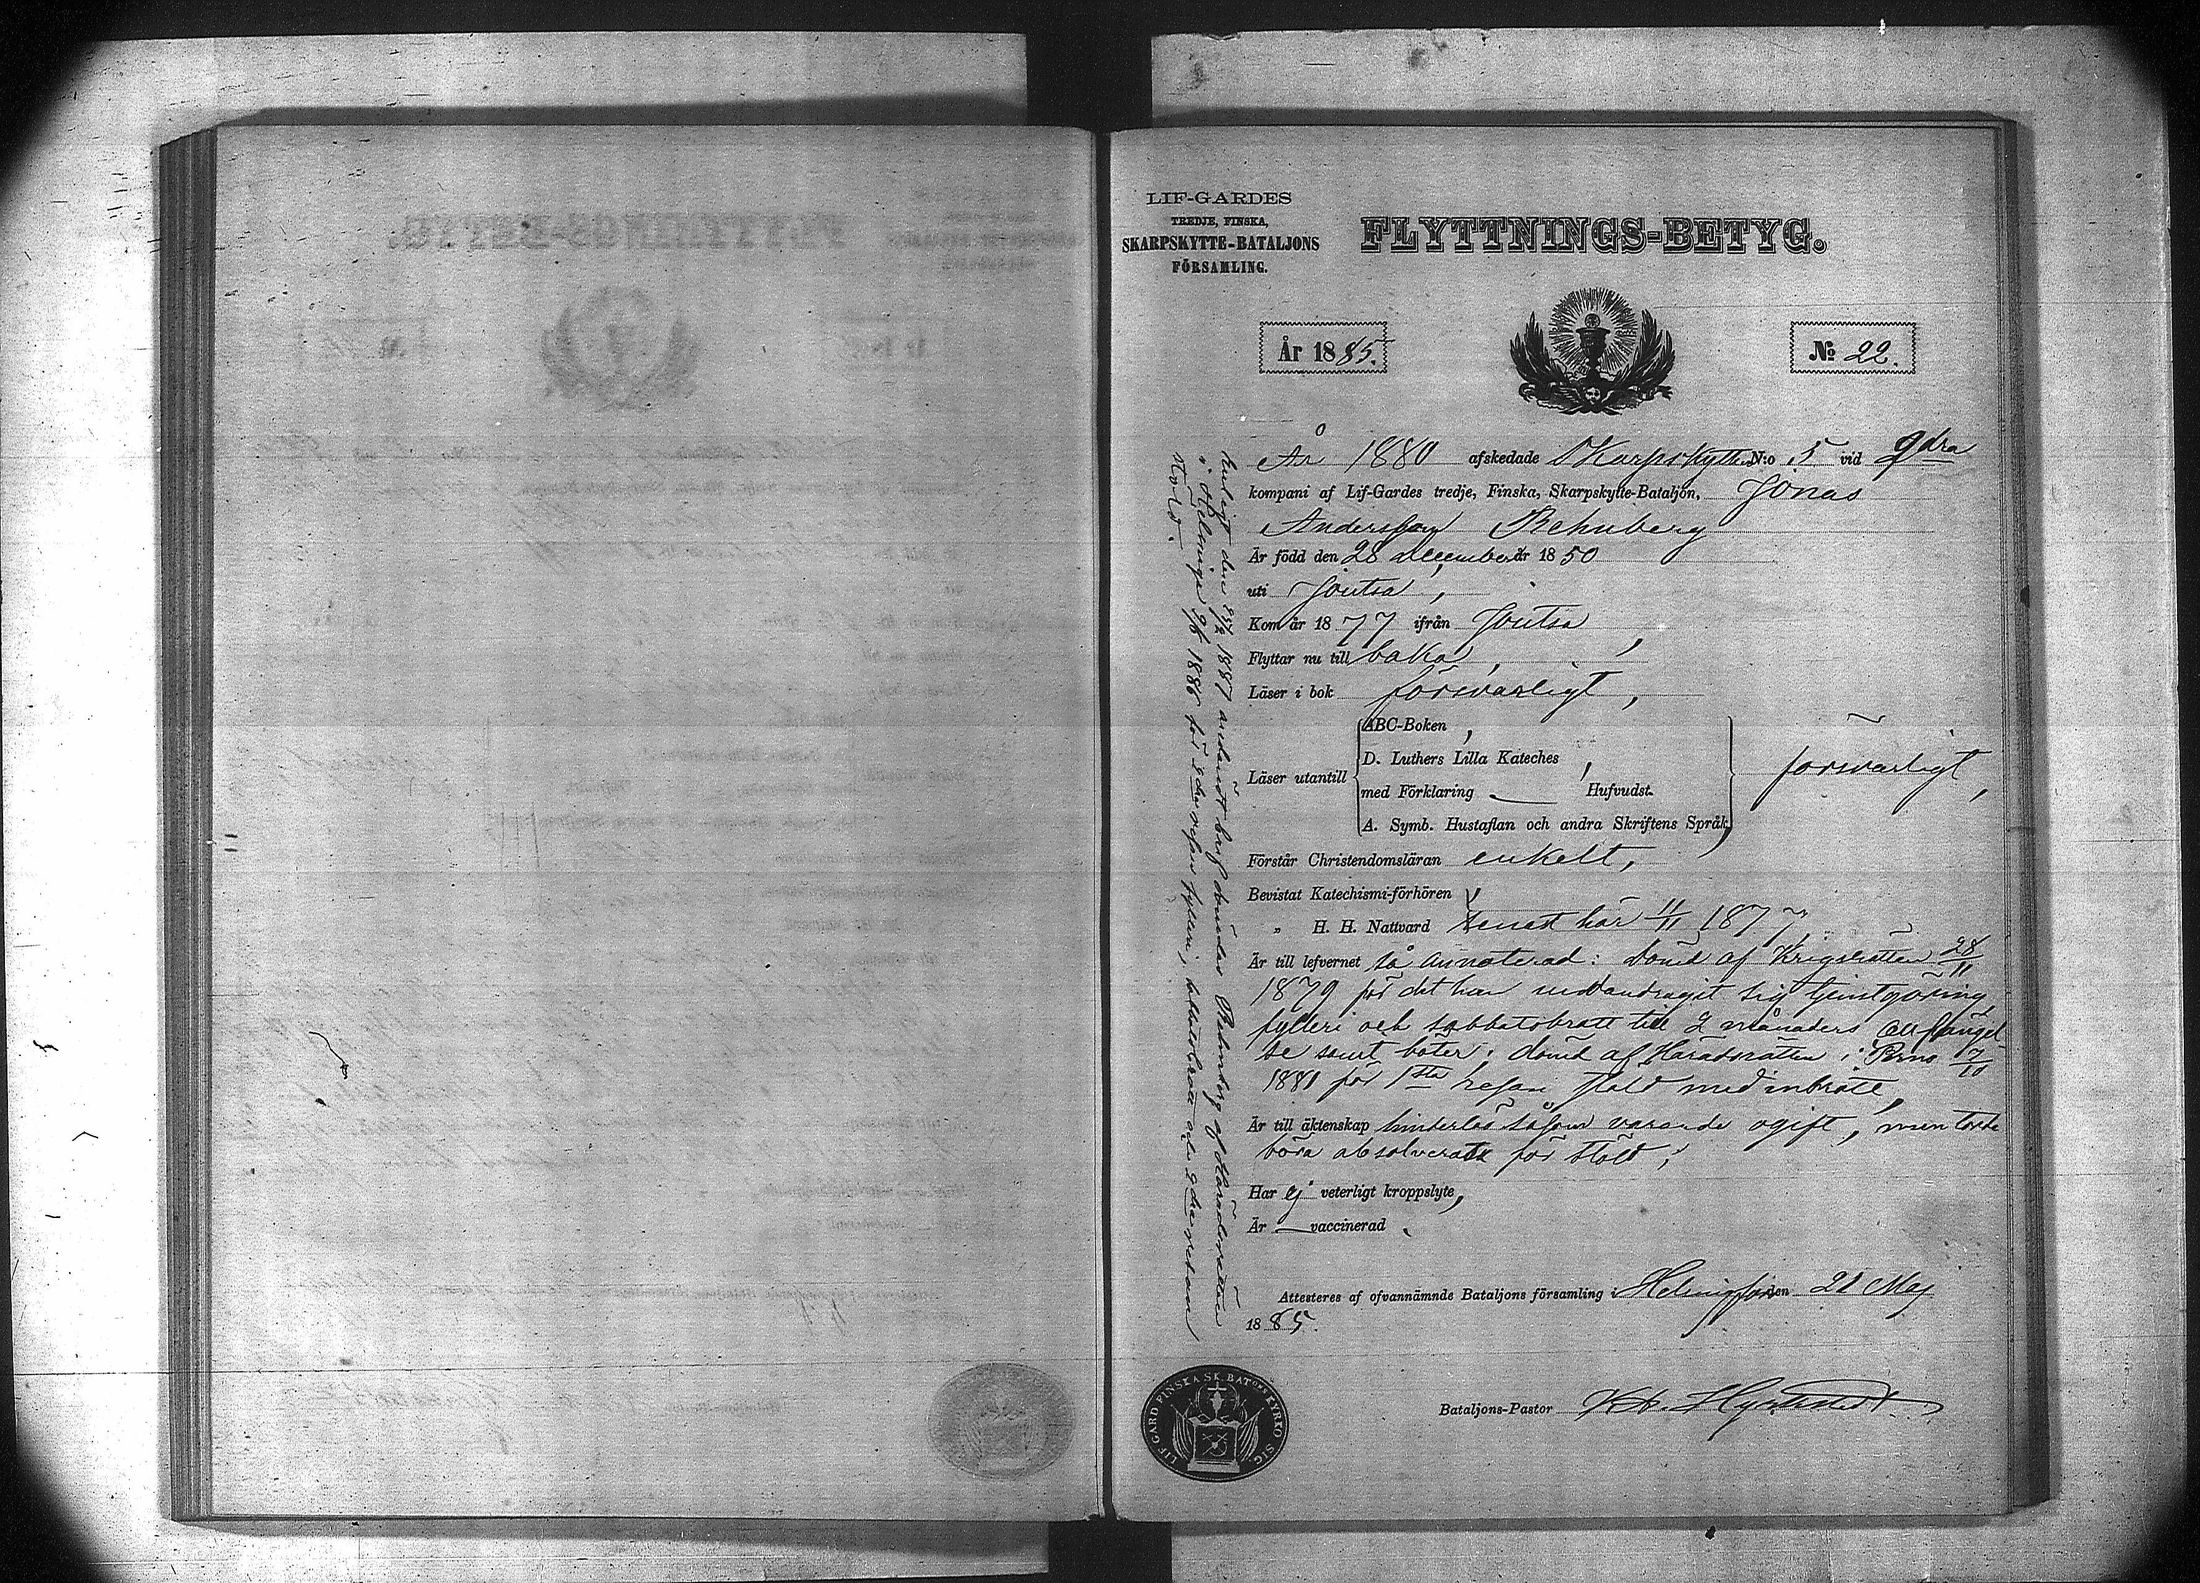 LIF-GARDES
TREDJE, FINSKA,
SKARPSKYTTE-BATALJONS
FÖRSAMLING.
FLYTTNINGS-BETYG.
År 1885.
№ 22.
År 1880 afskedade Skarpskytten N:o 5 vid 2dra
kompani af Lif-Gardes tredje, Finska, Skarpskytte-Bataljon, Jonas
Andersson Rehnberg
Är född den 28 december år 1850
uti Joutsa,
Kom år 1877 ifrån Joutsa,
Flyttar nu till baka,
Läser i bok försvarligt,
Läser utantill
ABC-Boken,
D. Luthers Lilla Kateches,
med Förklaring — Hufvudst.
A. Symb. Hustaflan och andra Skriftens Språk,
försvarligt,
Förstår Christendomsläran enkelt,
Bevistat Katechismi-förhören,
„ H. H. Nattvard senast här 4/11 1877,
Är till lefvernet så annoterad: dömd af Krigsrätten 28/11
1879 för det han undandragit sig tjenstgöring,
fylleri och sabbatsbrott till 2 månaders fängel-
se samt böter; dömd af Häradsrätten i Perno 7/10
1881 för 1sta resan stöld med inbrott,
Är till äktenskap hinderlös såsom varande ogift, men torde
böra absolveras för stöld;
Har ej veterligt kroppslyte,
Är — vaccinerad.
Attesteres af ofvannämnde Bataljons församling i Helsingfors den 21 Maj
1885.
Bataljons-Pastor
LIF GARD FINSKA SK. BAT:ONS KYRKO SIG.
Enligt den 23/2 1887 ankommit bref dömdes Rehnberg af Häradsrätten
i Helsinge 9/8 1886 för 2dra resan fylleri, sabbatsbrott och 2dra resan
stöld.